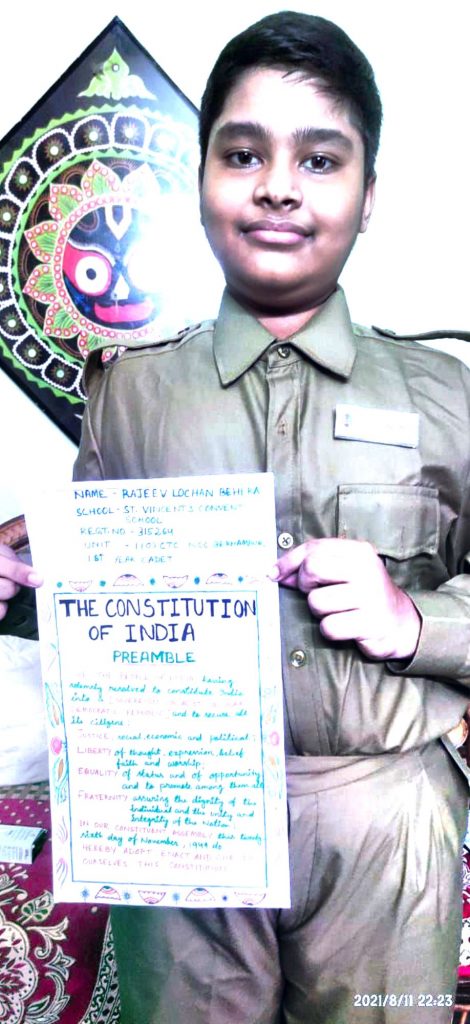 NAME - RAJEEV LOCHAN BEHERA
SCHOOL - ST. VINCENT'S CONVENT
SCHOOL
REGT NO - 315264
UNIT - NCC BERHAMPUR
1ST YEAR CADET
THE CONSTITUTION
OF INDIA
PREAMBLE
THE PEOPLE OF INDIA having
solemnly resolved to constitute India
into a
DEMOCRATIC REPUBLIC and to secure all
its citizens:
JUSTICE, social, economic and political;
LIBERTY of thought, expression, belief
faith and worship;
EQUALITY of status and of opportunity
and to promote among them all
FRATERNITY assuring the dignity of the
Individual and the Unity and
Integrity of the Nation;
IN OUR CONSTITUENT ASSEMBLY this twenty
sixth day of November, 1949 do
HEREBY ADOPT, ENACT AND GIVE TO
OURSELVES THIS CONSTITUTION
2021/8/11 22:23